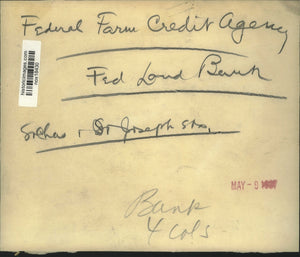 Federal Farm Credit Agency
Fed Land Bank
St Chas + St Joseph Sts.
MAY - 9 1937
Bank
4 cols
historicimages.com